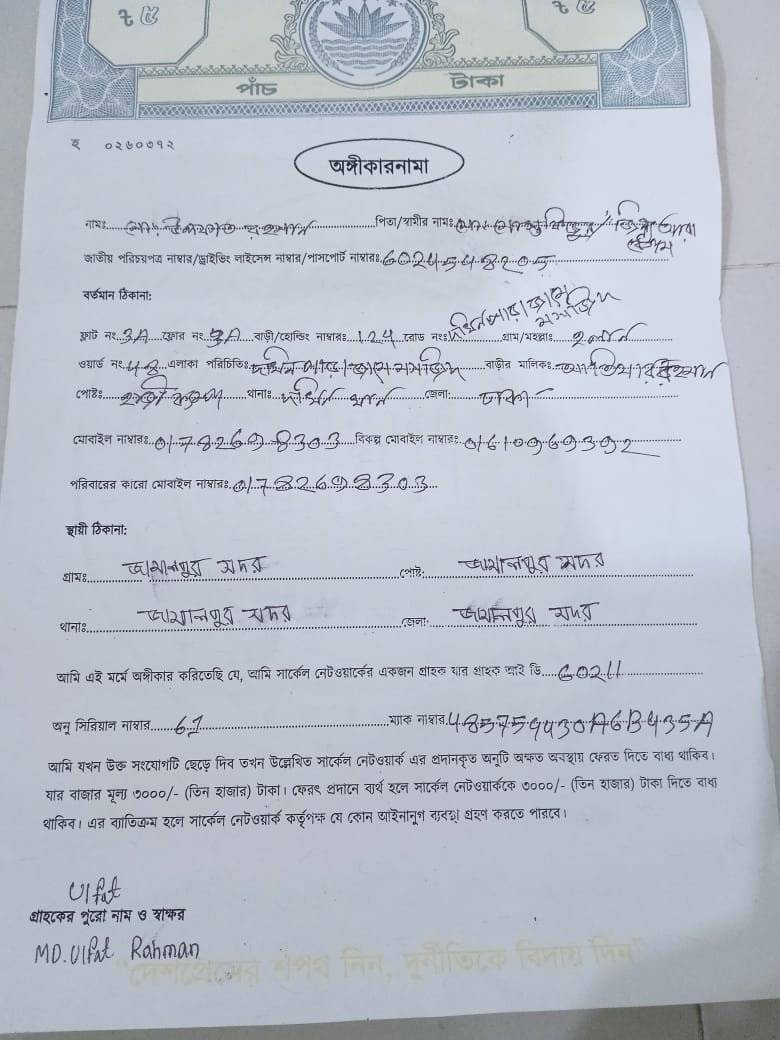 ৳ ৫ ৳ ৫
পাঁচ টাকা
ই ০২৬০৩৭২
অঙ্গীকারনামা
নামঃ মোঃ উলফাত রহমান পিতা/স্বামীর নামঃ মোঃ
জাতীয় পরিচয়পত্র নাম্বার/ড্রাইভিং লাইসেন্স নাম্বার/পাসপোর্ট নাম্বারঃ 6024548205
বর্তমান ঠিকানা:
ফ্লাট নং 3A ফ্লোর নং 3A বাড়ী/হোল্ডিং নাম্বারঃ 124 রোড নংঃ জামে মসজিদ গ্রাম/মহল্লাঃ
ওয়ার্ড নং 48 এলাকা পরিচিতিঃ জামে মসজিদ বাড়ীর মালিকঃ রহমান
পোষ্টঃ থানাঃ জেলা: ঢাকা
মোবাইল নাম্বারঃ 01782698303 বিকল্প মোবাইল নাম্বারঃ 01610969392
পরিবারের কারো মোবাইল নাম্বারঃ 01782698303
স্থায়ী ঠিকানা:
গ্রামঃ জামালপুর সদর পোষ্ট: জামালপুর সদর
থানাঃ জামালপুর সদর জেলা: জামালপুর সদর
আমি এই মর্মে অঙ্গীকার করিতেছি যে, আমি সার্কেল নেটওয়ার্কের একজন গ্রাহক যার গ্রাহক আই ডি 60211
অনু সিরিয়াল নাম্বার 61 ম্যাক নাম্বার 485759430A6B435A
আমি যখন উক্ত সংযোগটি ছেড়ে দিব তখন উল্লেখিত সার্কেল নেটওয়ার্ক এর প্রদানকৃত অনুটি অক্ষত অবস্থায় ফেরত দিতে বাধ্য থাকিব।
যার বাজার মূল্য ৩০০০/- (তিন হাজার) টাকা। ফেরৎ প্রদানে ব্যর্থ হলে সার্কেল নেটওয়ার্ককে ৩০০০/- (তিন হাজার) টাকা দিতে বাধ্য
থাকিব। এর ব্যাতিক্রম হলে সার্কেল নেটওয়ার্ক কর্তৃপক্ষ যে কোন আইনানুগ ব্যবস্থা গ্রহণ করতে পারবে।
Ulfat
গ্রাহকের পুরো নাম ও স্বাক্ষর
MD. Ulfat Rahman
"দেশপ্রেমের শপথ নিন, দুর্নীতিকে বিদায় দিন"